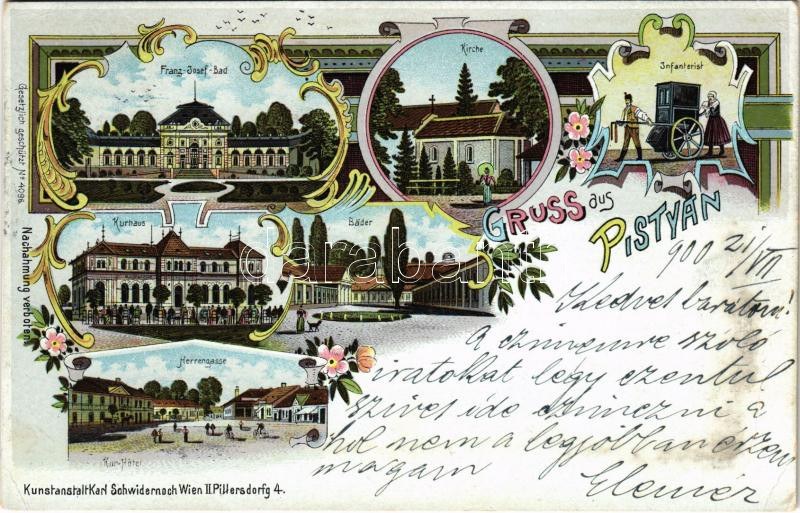 Franz-Josef-Bad
Kirche
Infanterist
Gesetzlich geschützt No 4096.
Nachahmung verboten.
Kurhaus
Bäder
GRUSS aus
PISTYÁN
darabanth
Herrengasse
Kur-Hôtel
900 21/VII
Kedves barátom!
A czimemre szoló
iratokat légy ezentul
szives ide czimezni a
hol nem a legjobban érzem
magam
Elemér
Kunstanstalt Karl Schwidernoch Wien II. Pillersdorfg 4.